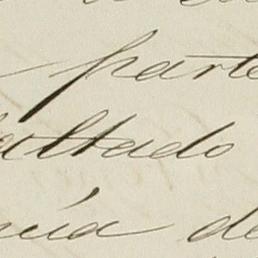 parte
ultado
nía de